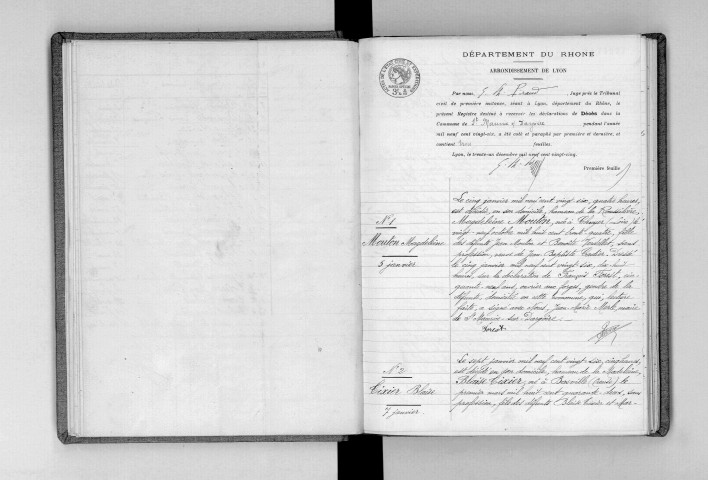 DÉPARTEMENT DU RHONE
ARRONDISSEMENT DE LYON
Par nous, Juge près le Tribunal
civil de première instance, séant à Lyon, département du Rhône, le
présent Registre destiné à recevoir les déclarations de Décès dans la
Commune de St Maurice s/ Dargoire pendant l'année
mil neuf cent vingt-six, a été coté et paraphé par première et dernière, et
contient feuilles.
Lyon, le trente-un décembre mil neuf cent vingt-cinq.
Première feuille
N° 1
Mouton Magdeleine
5 janvier
Le cinq janvier mil neuf cent vingt six, quatre heures,
est décédée, en son domicile, hameau de la
Magdeleine Mouton, née à (Loire) le
vingt-neuf octobre mil huit cent trente quatre, fille
des défunts Jean Mouton et Benoite, sans
profession, veuve de Jean Baptiste. Dressé
le cinq janvier mil neuf cent vingt six, dix heures
sur la déclaration de François Forest, cin-
quante neuf ans, ouvrier aux forges, gendre de la
défunte, domicilié en cette commune, qui, lecture
faite, a signé avec Nous, Jean Marie, maire
de St Maurice-sur-Dargoire.
Forest
N° 2
Tixier Blaise
7 janvier.
Le sept janvier mil neuf cent vingt six, cinq heures,
est décédé en son domicile, hameau de la Madeleine,
Blaise Tixier, né à le
premier mars mil huit cent quarante-trois, sans
profession, fils des défunts Blaise Tixier et Mar-